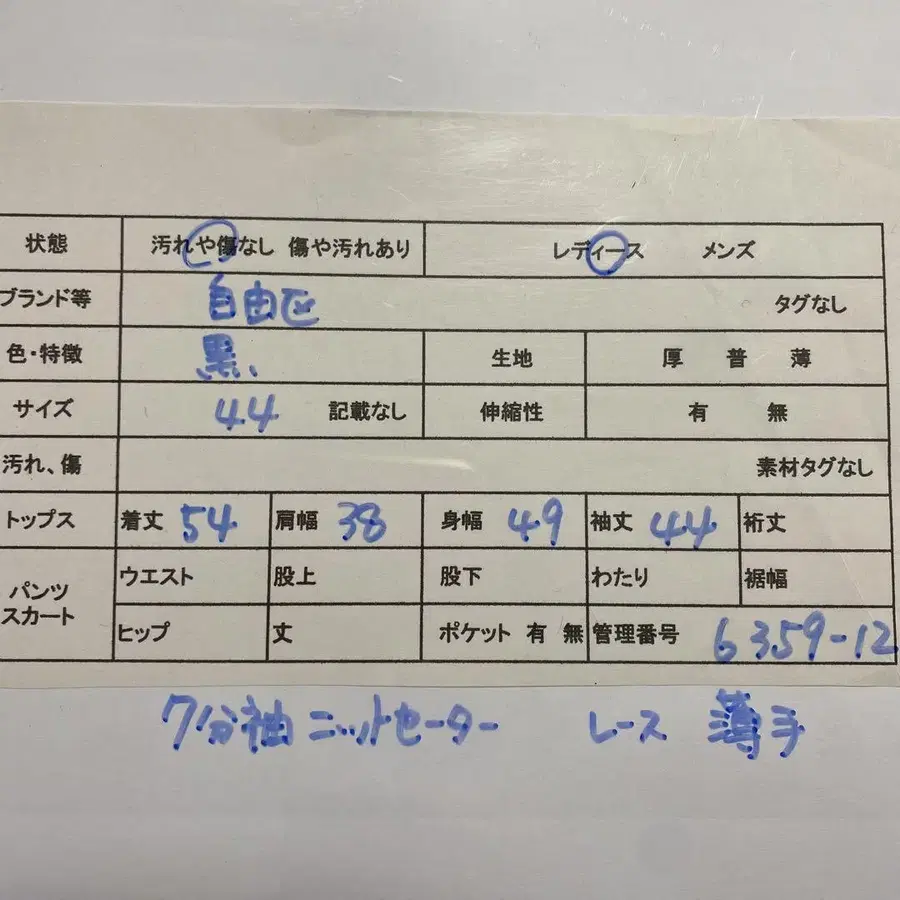 状態 汚れや傷なし 傷や汚れあり レディース メンズ
ブランド等 自由区 タグなし
色・特徴 黒、 生地 厚 普 薄
サイズ 44 記載なし 伸縮性 有 無
汚れ、傷 素材タグなし
トップス 着丈 54 肩幅 38 身幅 49 袖丈 44 裄丈
パンツ スカート ウエスト 股上 股下 わたり 裾幅
ヒップ 丈 ポケット 有 無 管理番号 6359-12
7分袖 ニットセーター レース 薄手